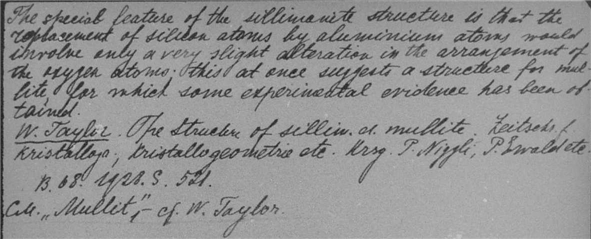 The special feature of the sillimanite structure is that the
replacement of silicon atoms by aluminium atoms would
involve only a very slight alteration in the arrangement of
the oxygen atoms; this at once suggests a structure for mul-
lite for which some experimental evidence has been ob-
tained.
W. Taylor. The structure of sillim. a. mullite. Zeitschr. f.
Kristallogr., Kristallogeometrie etc. Hrsg. P. Niggli, P. Ewald etc.
B. 68. 1928. S. 521.
См. „Mullit",- cf. W. Taylor.